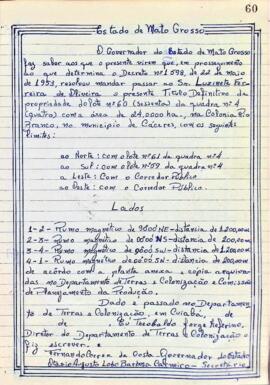 60
Estado de Mato Grosso
O Governador do Estado de Mato Grosso
faz saber aos que o presente virem que, em prosseguimento
ao que determina o Decreto nº 1.598, de 22 de maio
de 1953, resolveu mandar passar ao Snr. Luzinete Fer-
reira de Oliveira o presente Titulo Definitivo de
propriedade do lote nº 60 (sessenta) da quadra nº 4
(quatro) com a área de 24,0000 ha, na Colonia Rio
Branco, no municipio de Cáceres, com os seguintes
limites:
ao Norte: com o lote nº 61 da quadra nº 4
ao Sul: com o lote nº 59 da quadra nº 4
a Leste: com o Corredor Público
ao Oeste: com o Corredor Público.
Lados
1-2- Rumo magnetico de distancia de 1.200,00m
2-3- Rumo magnetico de distancia de 200,00m
3-4- Rumo magnetico de distancia de 1.200,00m
4-1- Rumo magnetico de distancia de 200,00m
de acordo com a planta anexa e cópia arquiva-
das no Departamento de Terras e Colonização e Comissão
de Planejamento da Produção.
Dado e passado no Departamento
de Terras e Colonização, em Cuiabá, de
de Eu Theobaldo Jorge
Diretor do Departamento de Terras e Colonização o
fiz escrever. e
Fernando Corrêa da Costa Governador do Estado
Augusto Lobo Barbosa Secretário